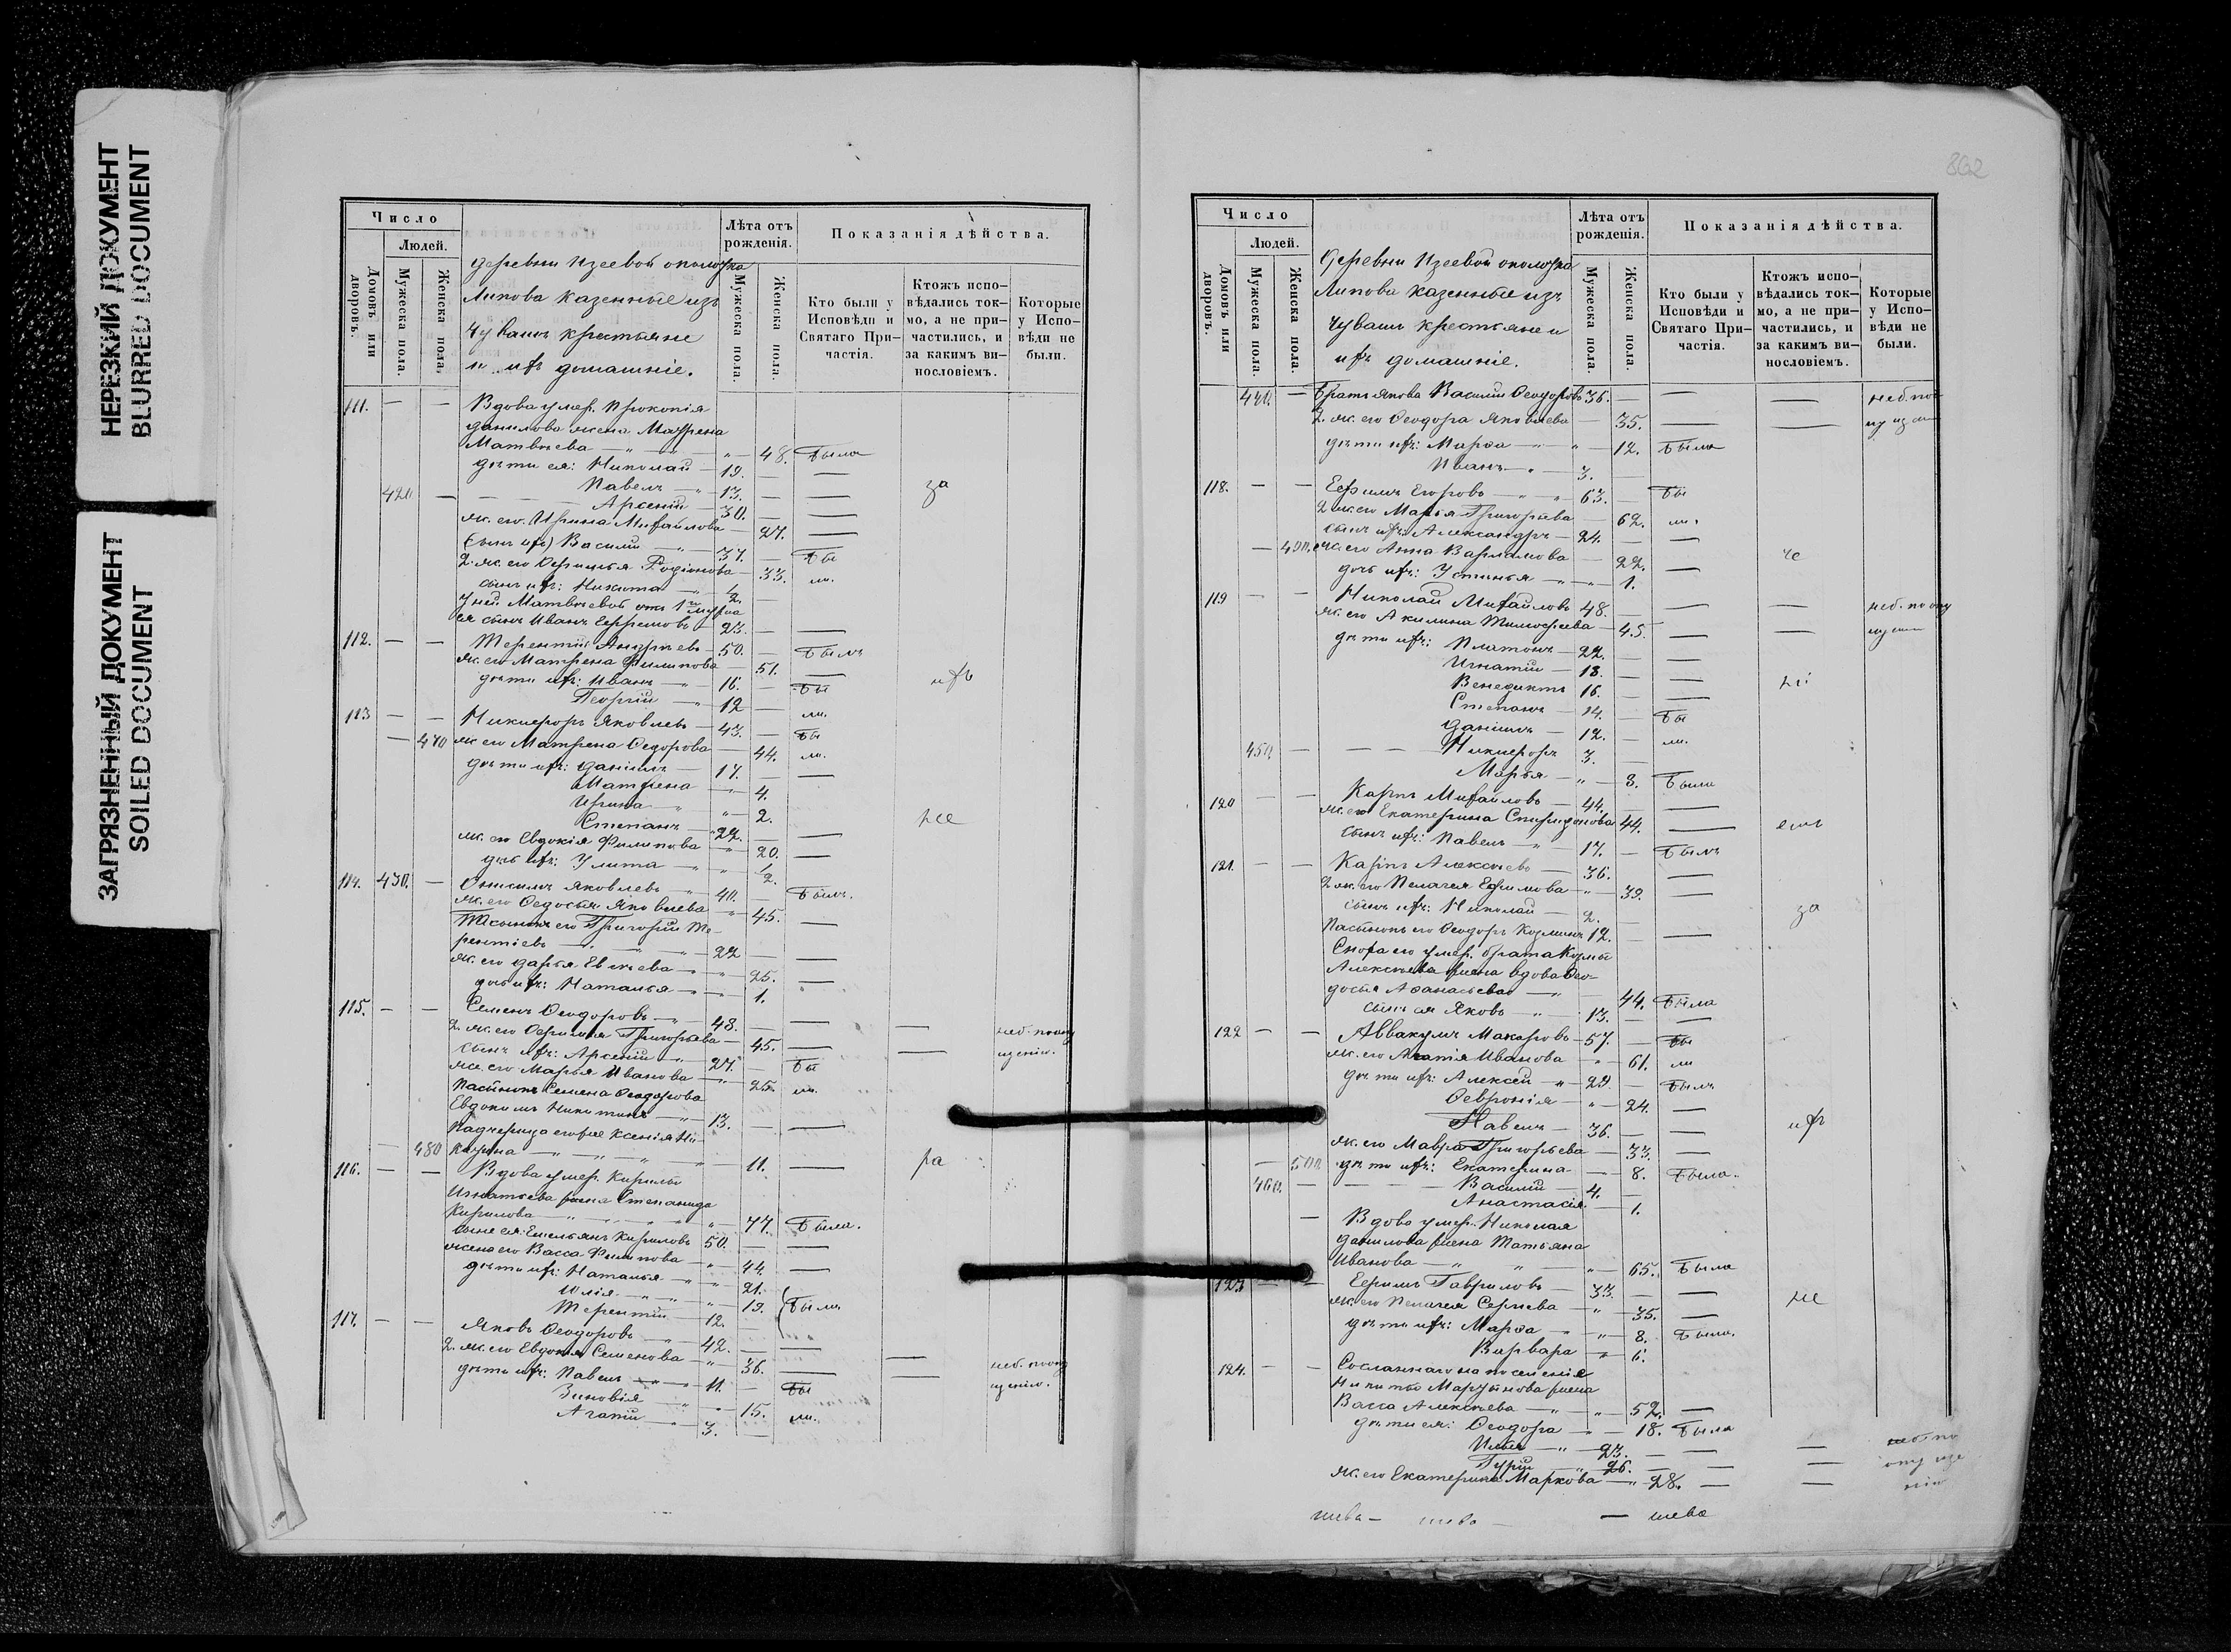 НЕРЕЗКИЙ ДОКУМЕНТ
BLURRED DOCUMENT
ЗАГРЯЗНЕННЫЙ ДОКУМЕНТ
SOILED DOCUMENT
Число
Людей.
Домовъ или дворовъ.
Мужеска пола.
Женска пола.
Деревни Изеевой околодка
Липова казенные изъ
Чувашъ крестьяне
и ихъ домашніе.
Лѣта отъ рожденія.
Мужеска пола.
Женска пола.
Показанія дѣйства.
Кто были у Исповѣди и Святаго Причастія.
Ктожъ исповѣдались токмо, а не причастились, и за какимъ винословіемъ.
Которые у Исповѣди не были.
111. — — Вдова умер. Прокопія
Данилова жена Матрена
Матвѣева — 48. была
дѣти ея: Николай — 19. —
Павелъ — 13. — — за
420 — Арсеній — 30. — —
ж. его Ирина Михайлова — 27. —
(сынъ ихъ) Василій — 37. — бы
2. ж. его Ефимья Родіонова — 33. ли.
сынъ ихъ: Никита — 2. —
У ней Матвѣевой отъ 1го мужа
ея сынъ Иванъ Ефремовъ — 23. — —
112. — — Терентій Андреевъ — 50. — былъ
ж. его Матрена Филипова — 51. —
дѣти ихъ: Иванъ — 16. — бы ихъ
Георгій — 12 — ли.
113 — — Никифоръ Яковлевъ — 43. — бы
— 470 ж. его Матрена Ѳедорова — 44. ли.
дѣти ихъ: Даніилъ — 17. — —
Матрена — 4.
Ирина — 2.
Степанъ — 22. — — же
ж. его Евдокія Филипова — 20. —
дочь ихъ: Улита — 2.
114. 430. — Онисимъ Яковлевъ — 40. — былъ.
ж. его Ѳедосья Яковлева — 45. —
Пасынокъ его Григорій Те-
рентіевъ — 22 — —
ж. его Дарья Евсѣева — 25. —
дочь ихъ: Наталья — 1.
115. — — Семенъ Ѳеодоровъ — 48. — — — неб. по опу
2. ж. его Ефимія Григорьева — 45. — — щенію.
сынъ ихъ: Арсеній — 27. — бы
ж. его Марья Иванова — 25. ли.
Пасынокъ Семена Ѳеодорова
Евдокимъ Никитинъ — 13. — —
Падчерица его же Ксенія Ни-
— 480 китина — 11. — ра
116. — — Вдова умер. Кирилы
Игнатьева жена Степанида
Кирилова — 77. была.
сынъ ея: Емельянъ Кириловъ 50. — —
жена его Васса Филипова — 44. —
дѣти ихъ: Наталья — 21.
Юлія — 19. были
Терентій — 12.
117. — — Яковъ Ѳеодоровъ — 42. — — —
2. ж. его Евдокія Семенова — 36. — — неб. по опу
дѣти ихъ: Павелъ — 11. — бы щенію.
Зиновія — 15. ли.
Агапій — 3. —
862
Число
Людей.
Домовъ или дворовъ.
Мужеска пола.
Женска пола.
Деревни Изеевой околодка
Липова казенные изъ
Чувашъ крестьяне и
ихъ домашніе.
Лѣта отъ рожденія.
Мужеска пола.
Женска пола.
Показанія дѣйства.
Кто были у Исповѣди и Святаго Причастія.
Ктожъ исповѣдались токмо, а не причастились, и за какимъ винословіемъ.
Которые у Исповѣди не были.
440. — Братъ Якова Василій Ѳеодоровъ 36. — — —
2. ж. его Ѳеодора Яковлева — 35. — —
дѣти ихъ: Марѳа — 12. была
Иванъ — 3. —
118. — — Ефимъ Егоровъ — 63. — бы
2 ж. его Марья Григорьева — 62. ли.
сынъ ихъ: Александръ — 24. — —
— 490. ж. его Анна Варламова — 22. —
дочь ихъ: Устинья — 1.
119 — — Николай Михайловъ 48. — — — неб. по опу
ж. его Акилина Тимоѳеева — 45. — —
дѣти ихъ: Платонъ — 22. — —
Игнатій — 18. — —
Венедиктъ 16. — —
Степанъ — 14. — бы
Даніилъ — 12. — ли.
450. — — Никифоръ 3. —
Марья — 8. была
120 — — Карпъ Михайловъ — 44. — —
ж. его Екатерина Спиридонова 44. —
сынъ ихъ: Павелъ — 17. — былъ
121. — — Карпъ Алексѣевъ — 36. — —
2 ж. его Пелагея Ефимова — 39. —
сынъ ихъ: Николай — 2. за
Пасынокъ его Ѳеодоръ Козминъ 12. — —
Сноха его умер. брата Козмы
Алексѣева жена вдова Ѳео-
досья Аѳанасьева — 44. была
сынъ ея Яковъ — 13. — —
122 — — Аввакумъ Макаровъ — 57. — бы
ж. его Агапія Иванова — 61. ли
дѣти ихъ: Алексей — 29. — былъ
Ѳевронія — 24. —
Павелъ — 36. — — ихъ
ж. его Мавра Григорьева — 33. —
— 500 дѣти ихъ: Екатерина — 8. была.
460. — Василій — 4. —
Анастасія — 1.
— Вдова умер. Николая
Данилова жена Татьяна
Иванова — 65. была
123 — — Ефимъ Гавриловъ — 33. — — же
ж. его Пелагея Сергѣева — 35. —
дѣти ихъ: Марѳа — 8. была.
Варвара — 6.
124. — — Сосланнаго на поселеніе
Никиты
жена
Васса Алексѣева — 52. —
дѣти ея: Ѳеодора — 18. была
Илья — 23. — — —
Гурій — 26. — — —
ж. его Екатерина Маркова — 28. — —